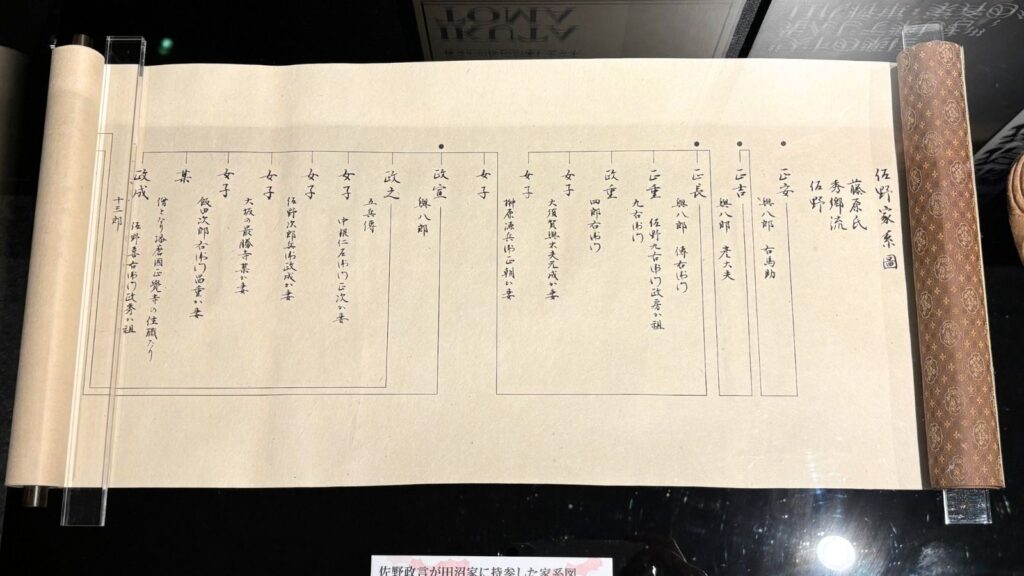 佐野家系圖
藤原氏
秀郷流
佐野
正安
與八郎 右馬助
正吉
與八郎 彦六夫
正長
與八郎 傳右衛門
正重
佐野九右衛門政房が祖
九右衛門
政重
四郎右衛門
女子
大須賀與兵夫元成が妻
女子
榊原源兵衛正朝が妻
女子
政宣
與八郎
政之
五兵衛
女子
中根仁左衛門正次が妻
女子
佐野次郎兵衛政成が妻
女子
大坂の最勝寺某が妻
女子
飯田次郎右衛門昌重が妻
某
僧となり
正覺寺の住職たり
政成
佐野喜右衛門政秀が祖
十三郎
佐野政言が田沼家に持参した家系図